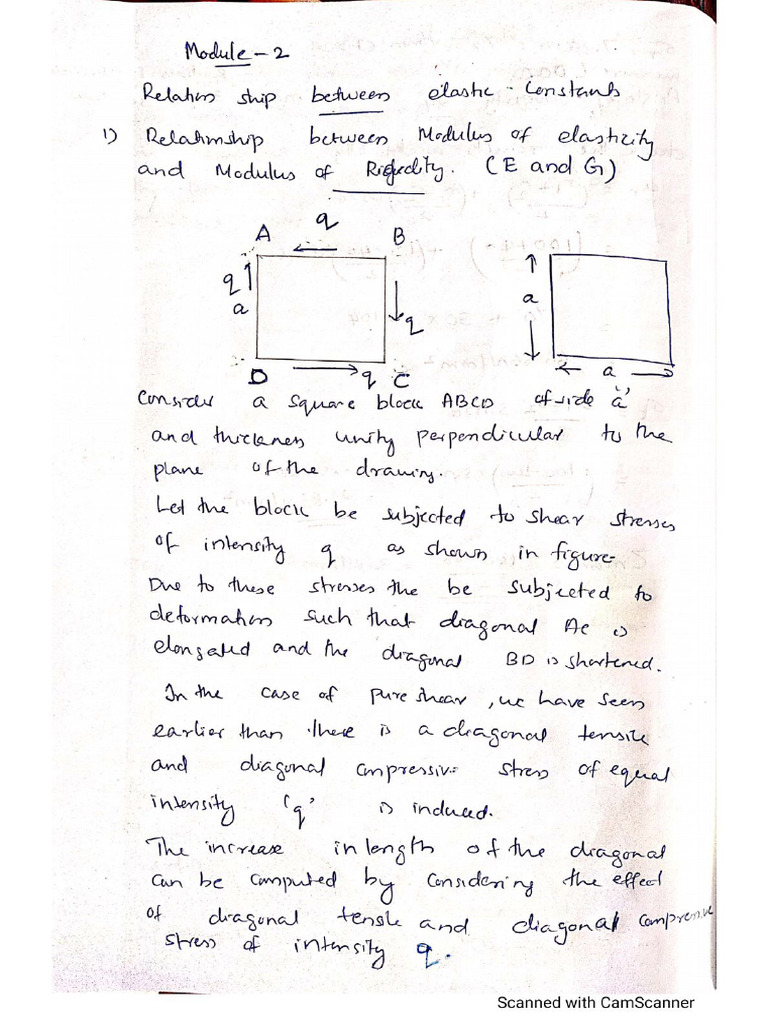 Module - 2
Relations ship between elastic - Constants
1) Relationship between Modulus of elasticity
and Modulus of Rigidity. (E and G)
q
A B
q
a
q
a
D q C
a
Consider a square block ABCD of side 'a'
and thickness unity perpendicular to the
plane of the drawing.
Let the block be subjected to shear stresses
of intensity q as shown in figure.
Due to these stresses the be subjected to
deformation such that diagonal AC is
elongated and the diagonal BD is shortened.
In the case of pure shear, we have seen
earlier than there is a diagonal tensile
and diagonal compressive stress of equal
intensity 'q' is induced.
The increase in length of the diagonal
can be computed by considering the effect
of diagonal tensile and diagonal compressive
stress of intensity q.
Scanned with CamScanner